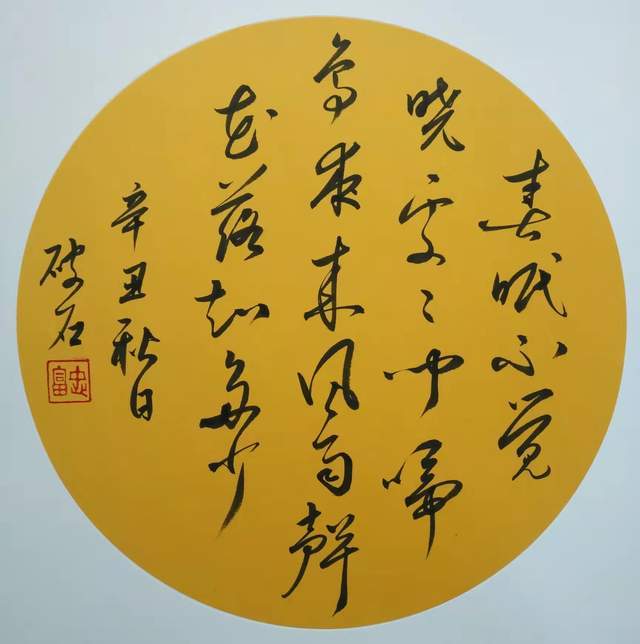 春眠不觉
晓处々闻啼
鸟夜来风雨聲
花落知多少
辛丑秋日
破石
忠富